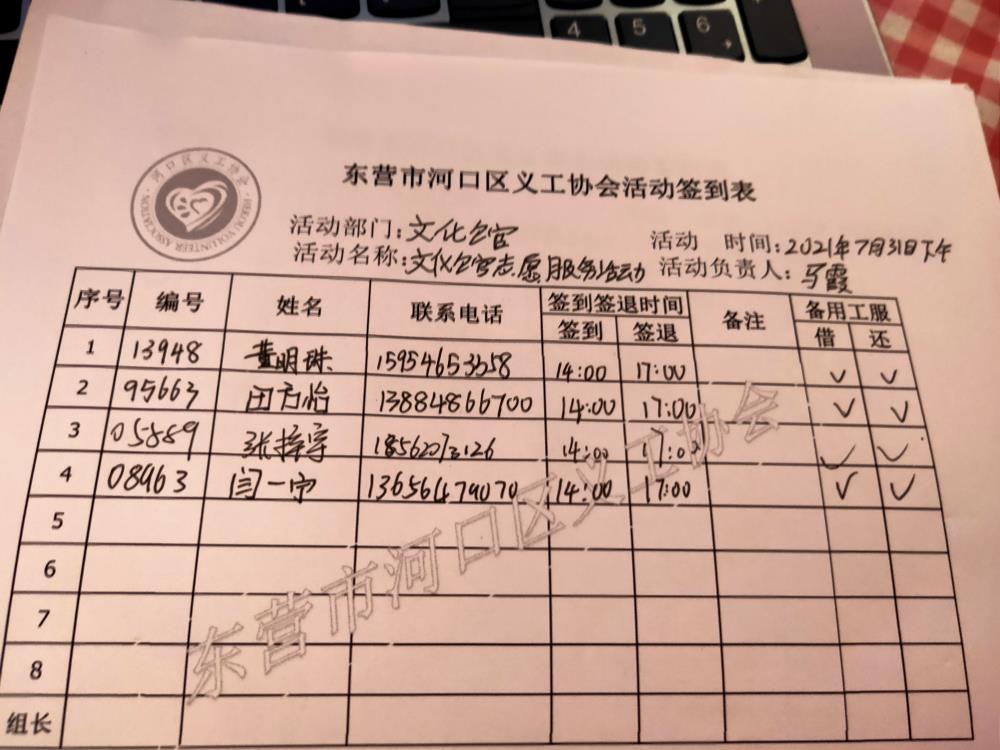 4 5 6
河口区义工协会
HEKOU VOLUNTEER ASSOCIATION
东营市河口区义工协会活动签到表
活动部门:文化公官
活动 时间:2021年7月31日下午
活动名称:文化公官志愿服务活动
活动负责人:马霞
序号 编号 姓名 联系电话 签到签退时间 备注 备用工服
签到 签退 借 还
1 13948 董明珠 15954653558 14:00 17:00 ✓ ✓
2 95663 田方怡 13884866700 14:00 17:00 ✓ ✓
3 05889 张梓宇 18562073126 14:00 17:00 ✓ ✓
4 08963 闫一宁 13656479070 14:00 17:00 ✓ ✓
5
6
7
8
组长
东营市河口区义工协会